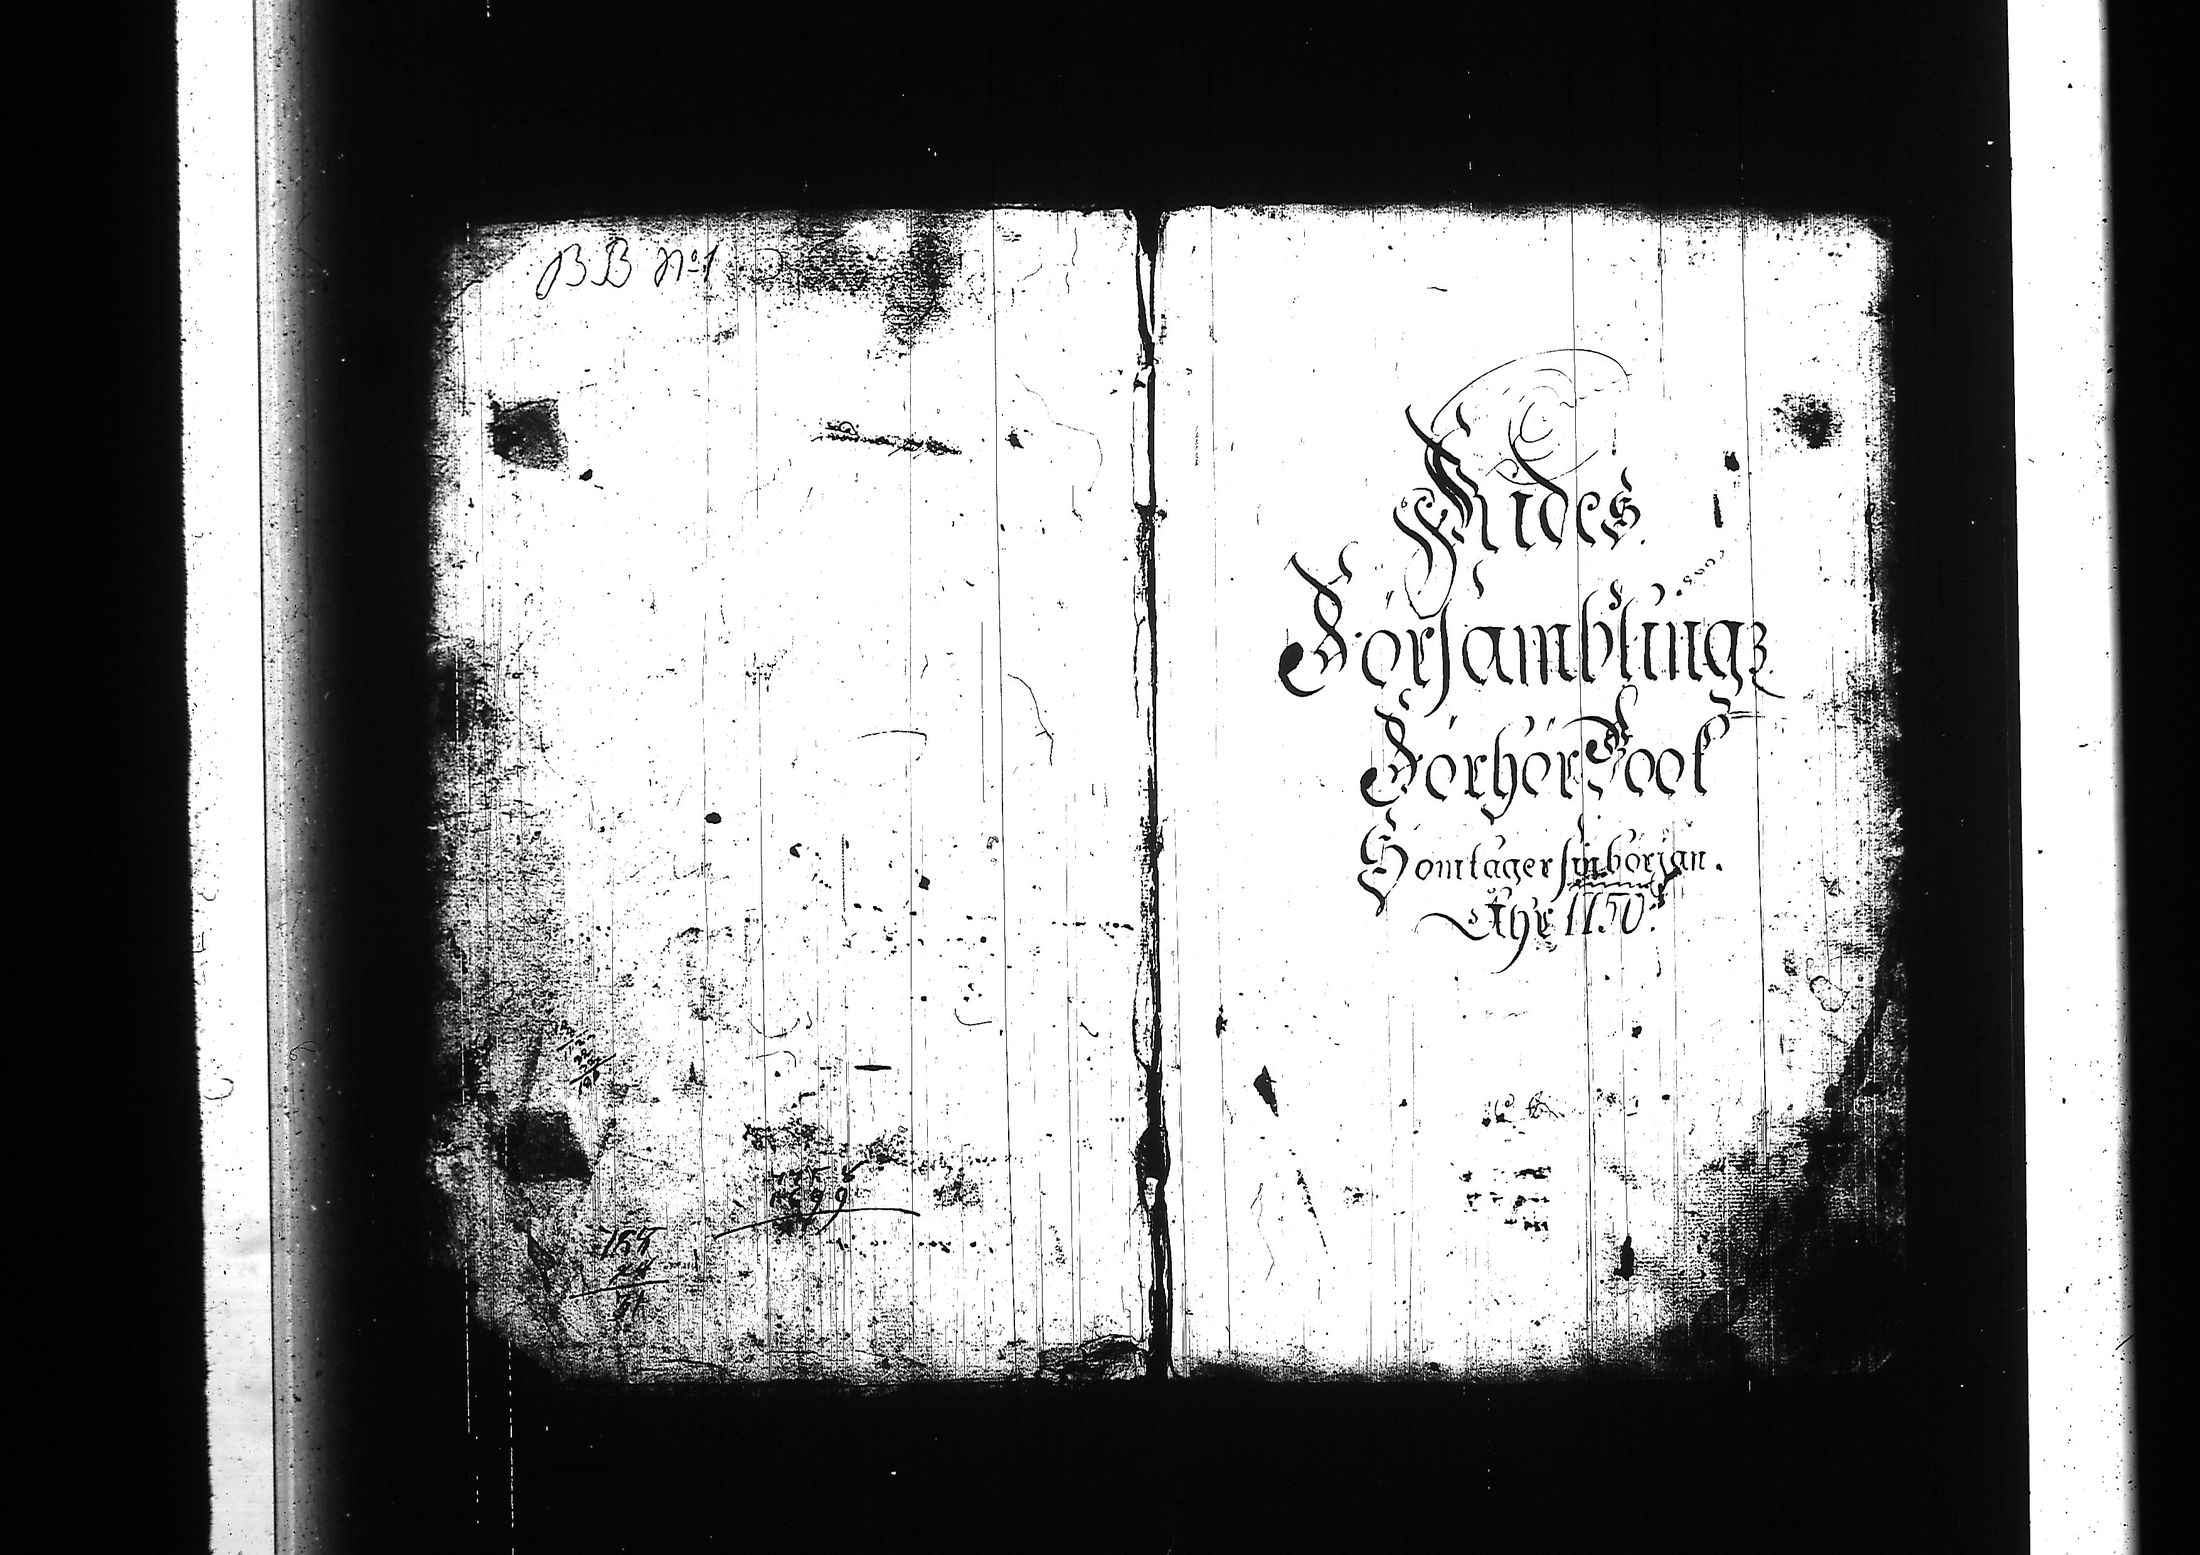 BB No 1
Kides
Församblingz
Förhör Book
Somtager sin början.
Åhr 1750.
1758
1699
158